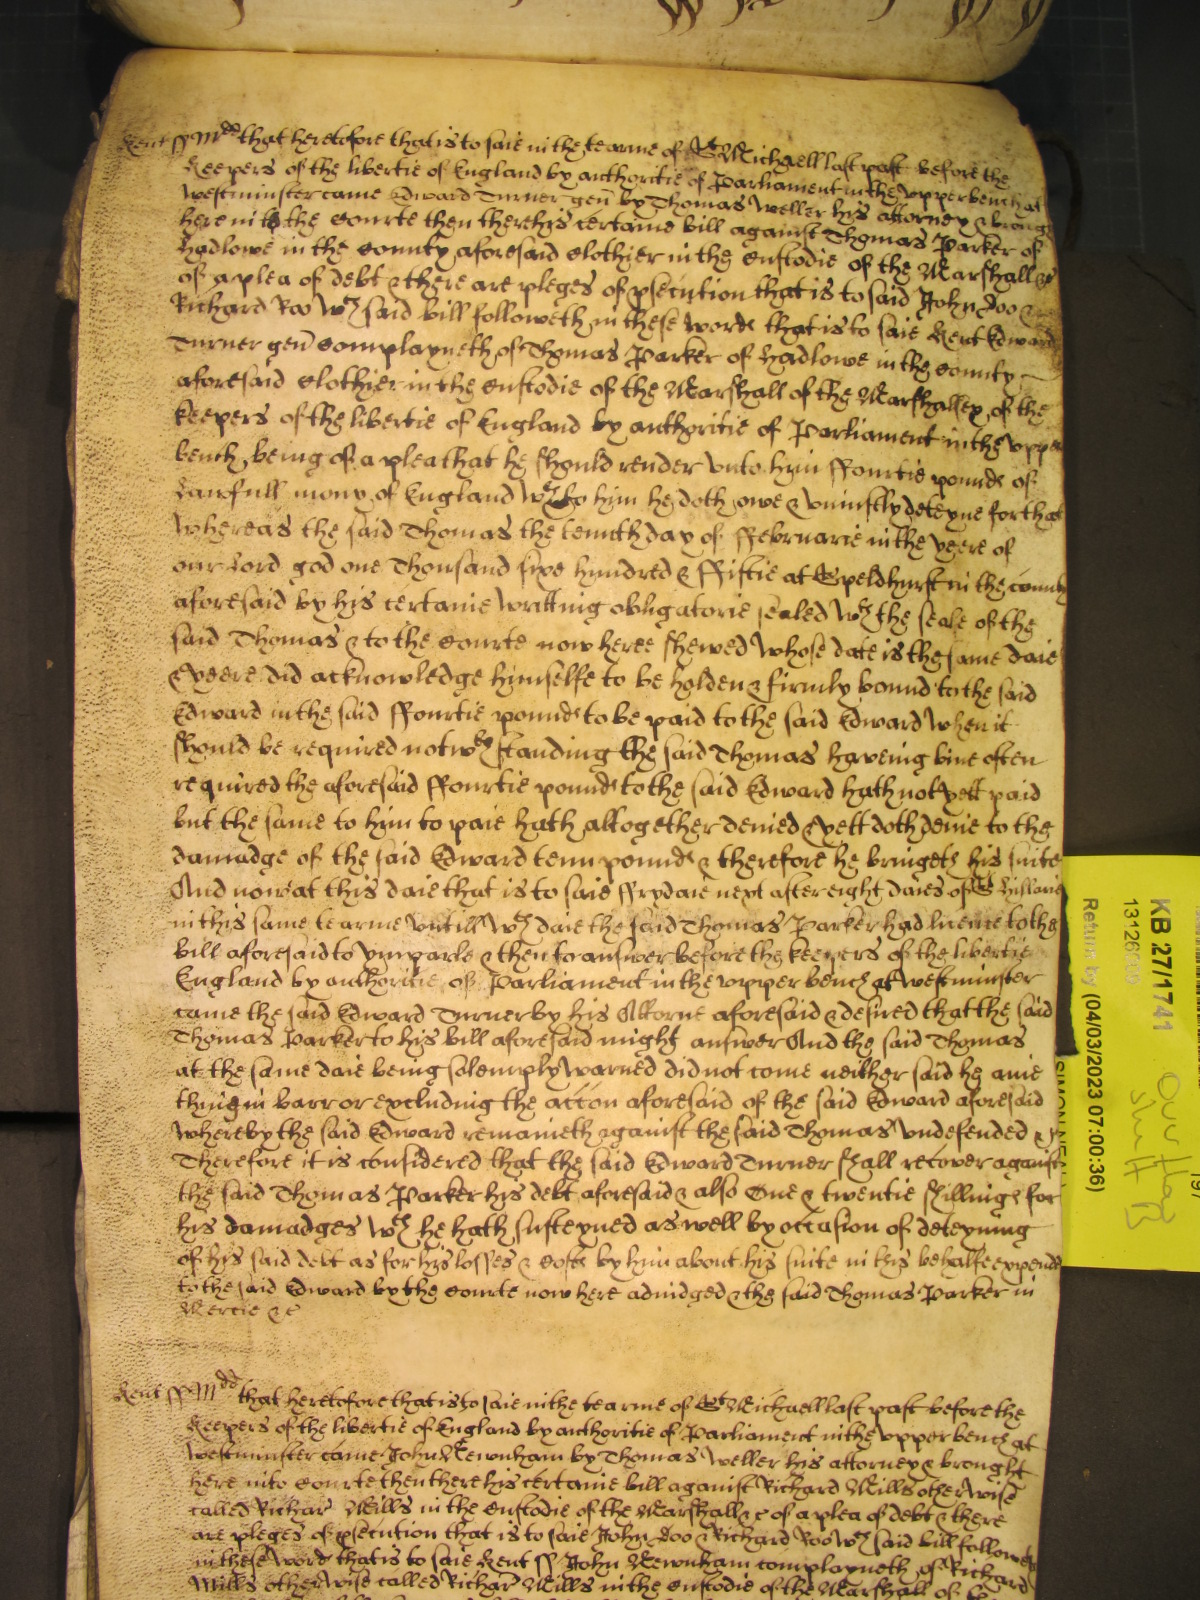 Kent ss Mdd that heretofore that is to saie in the tearme of St Michaell last past before the
Keepers of the libertie of England by authoritie of Parliament in the vpper bench at
Westminster came Edward Turner gen by Thomas Weller his attorney & brought
here into the Courte then there his certaine bill against Thomas Parker of
Hadlowe in the County aforesaid Clothier in the Custodie of the Marshall &c
of a plea of debt & there are pleges of psecution that is to said John Doo &
Richard Roo Wch said bill followeth in these words that is to saie Kent Edward
Turner gen Complayneth of Thomas Parker of Hadlowe in the County
aforesaid Clothier in the Custodie of the Marshall of the Marshallsey of the
Keepers of the libertie of England by authoritie of Parliament in the vpper
bench being of a plea that he should render vnto him ffourtie pounds of
Lawfull mony of England Wch to him he doth owe & vniustly deteyne for that
Whereas the said Thomas the tennth day of ffebruarie in the yeere of
our Lord god one Thousand sixe hundred & ffiftie at Speldhurst in the County
aforesaid by his certaine Writting obligatorie sealed Wth the seale of the
said Thomas & to the Courte now heere shewed Whose date is the same daie
& yeere did acknowledge himselfe to be holden & firmly bound to the said
Edward in the said ffourtie pounds to be paid to the said Edward When it
should be required notwthstanding the said Thomas haveing bine often
required the aforesaid ffourtie pounds to the said Edward hath not yett paid
but the same to him to paie hath altogether denied & yett doth denie to the
damadge of the said Edward tenn pounds & therefore he bringeth his suite
And now at this daie that is to saie ffrydaie next after eight daies of St Hillarie
in this same tearme vntill Wch daie the said Thomas Parker had licence to the
bill aforesaid to ymparle & then to answer before the keepers of the libertie
England by authoritie of Parliament in the vpper bench at Westminster
came the said Edward Turner by his Attorne aforesaid & desired that the said
Thomas Parker to his bill aforesaid might answer And the said Thomas
at the same daie being solemply warned did not come neither said he anie
thing in barr or excluding the accon aforesaid of the said Edward aforesaid
Whereby the said Edward remaineth against the said Thomas vndefended &c
Therefore it is considered that the said Edward Turner shall recover against
the said Thomas Parker his debt aforesaid & also One & twentie shillings for
his damadges Wch he hath susteyned as well by occasion of deteyning
of his said debt as for his losses & costs by him about his suite in this behalfe expended
to the said Edward by the Courte now here adiudged & the said Thomas Parker in
Mercie &c
Kent ss Mdd that heretofore that is to saie in the tearme of St Michaell last past before the
Keepers of the libertie of England by authoritie of Parliament in the vpper bench at
Westminster came John Newnham by Thomas Weller his attorney & brought
here into Courte then there his certaine bill against Richard Mills otherwise
called Richar Mills in the Custodie of the Marshall &c of a plea of debt & there
are pleges of psecution that is to saie John Doo & Richard Roo Wch said bill followeth
in these words that is to saie Kent ss John Newnham complayneth of Richard
Mills otherwise called Richar Mills in the Custodie of the Marshall of the
KB 27/1741
Return by (04/03/2023 07:00:36)